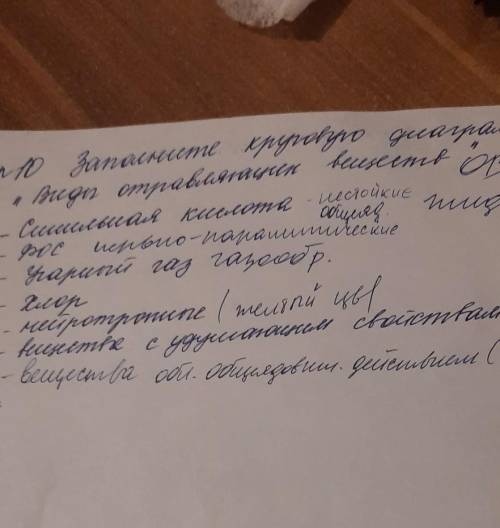 10 Заполните круговую диаграм
"Виды отравляющих веществ "ОВ
- Синильная кислота - нестойкие
общеяд. жид
- ФОС нервно-паралитические
- Угарный газ газообр.
- Хлор
- нейротропные (желтый цв
- вещества с удушающим свойствам
- вещества обл. общеядовит. действием (